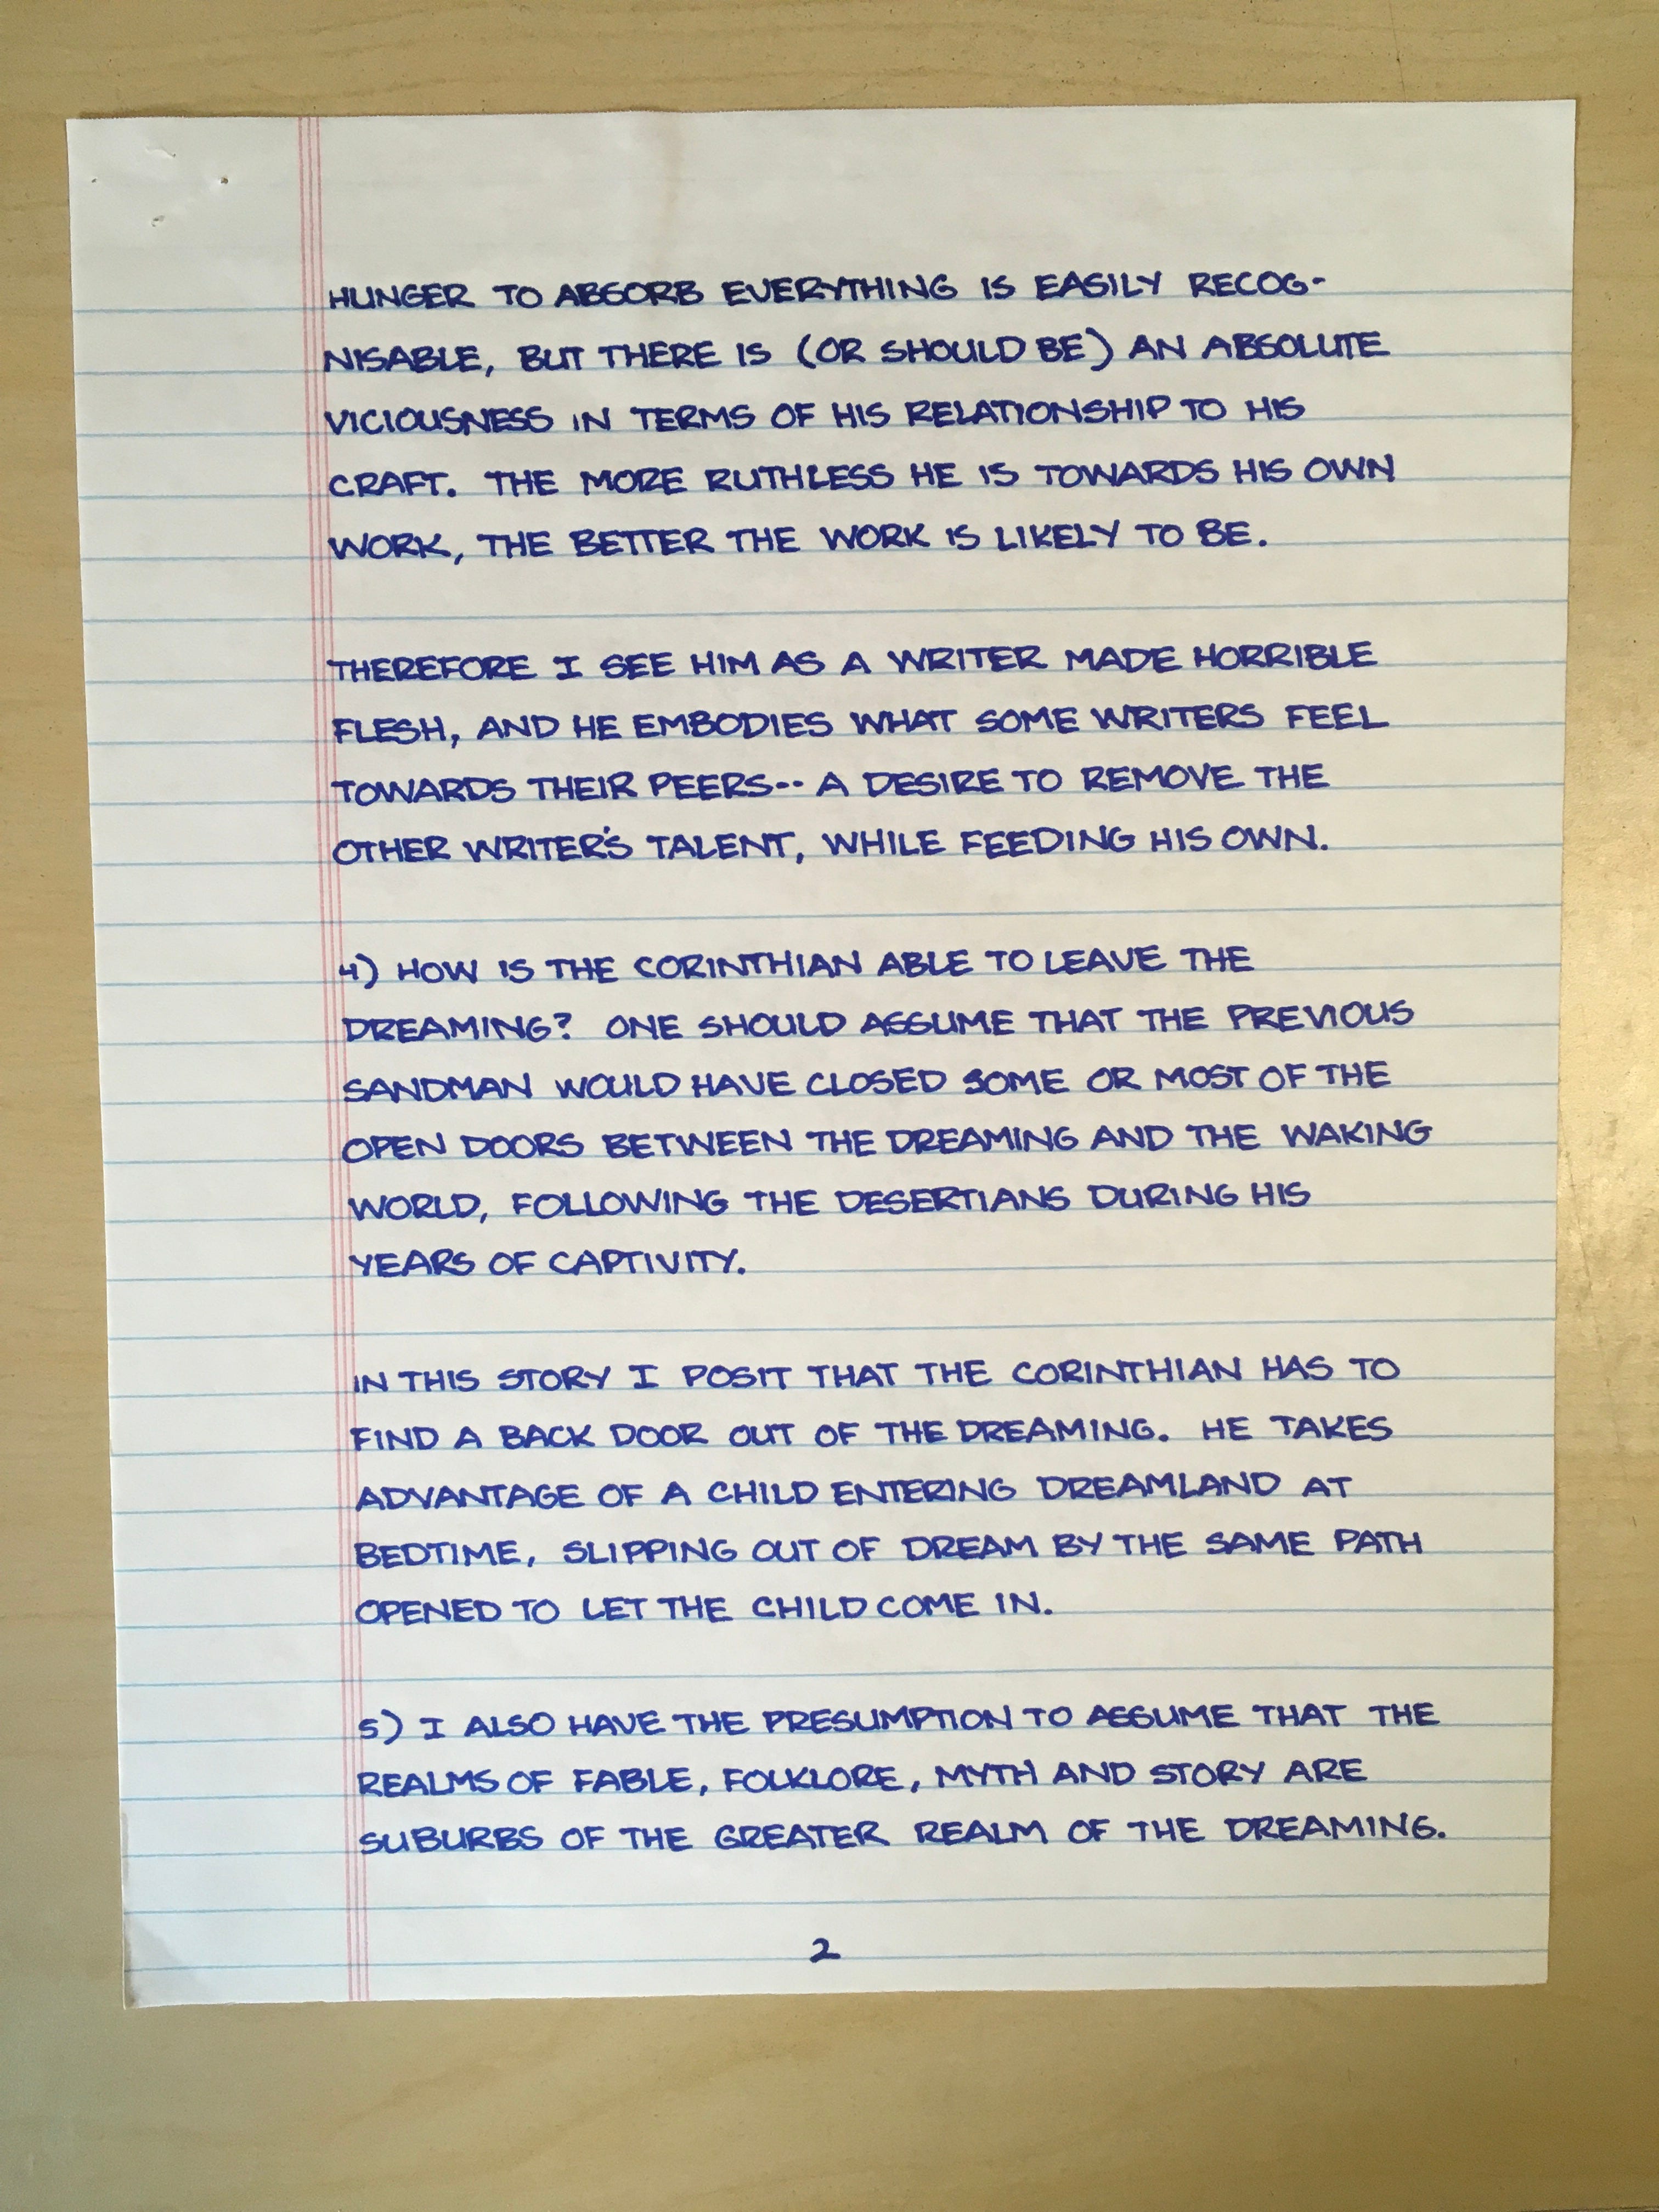 HUNGER TO ABSORB EVERYTHING IS EASILY RECOG-
NISABLE, BUT THERE IS (OR SHOULD BE) AN ABSOLUTE
VICIOUSNESS IN TERMS OF HIS RELATIONSHIP TO HIS
CRAFT. THE MORE RUTHLESS HE IS TOWARDS HIS OWN
WORK, THE BETTER THE WORK IS LIKELY TO BE.
THEREFORE I SEE HIM AS A WRITER MADE HORRIBLE
FLESH, AND HE EMBODIES WHAT SOME WRITERS FEEL
TOWARDS THEIR PEERS-- A DESIRE TO REMOVE THE
OTHER WRITER'S TALENT, WHILE FEEDING HIS OWN.
4) HOW IS THE CORINTHIAN ABLE TO LEAVE THE
DREAMING? ONE SHOULD ASSUME THAT THE PREVIOUS
SANDMAN WOULD HAVE CLOSED SOME OR MOST OF THE
OPEN DOORS BETWEEN THE DREAMING AND THE WAKING
WORLD, FOLLOWING THE DESERTIANS DURING HIS
YEARS OF CAPTIVITY.
IN THIS STORY I POSIT THAT THE CORINTHIAN HAS TO
FIND A BACK DOOR OUT OF THE DREAMING. HE TAKES
ADVANTAGE OF A CHILD ENTERING DREAMLAND AT
BEDTIME, SLIPPING OUT OF DREAM BY THE SAME PATH
OPENED TO LET THE CHILD COME IN.
5) I ALSO HAVE THE PRESUMPTION TO ASSUME THAT THE
REALMS OF FABLE, FOLKLORE, MYTH AND STORY ARE
SUBURBS OF THE GREATER REALM OF THE DREAMING.
2